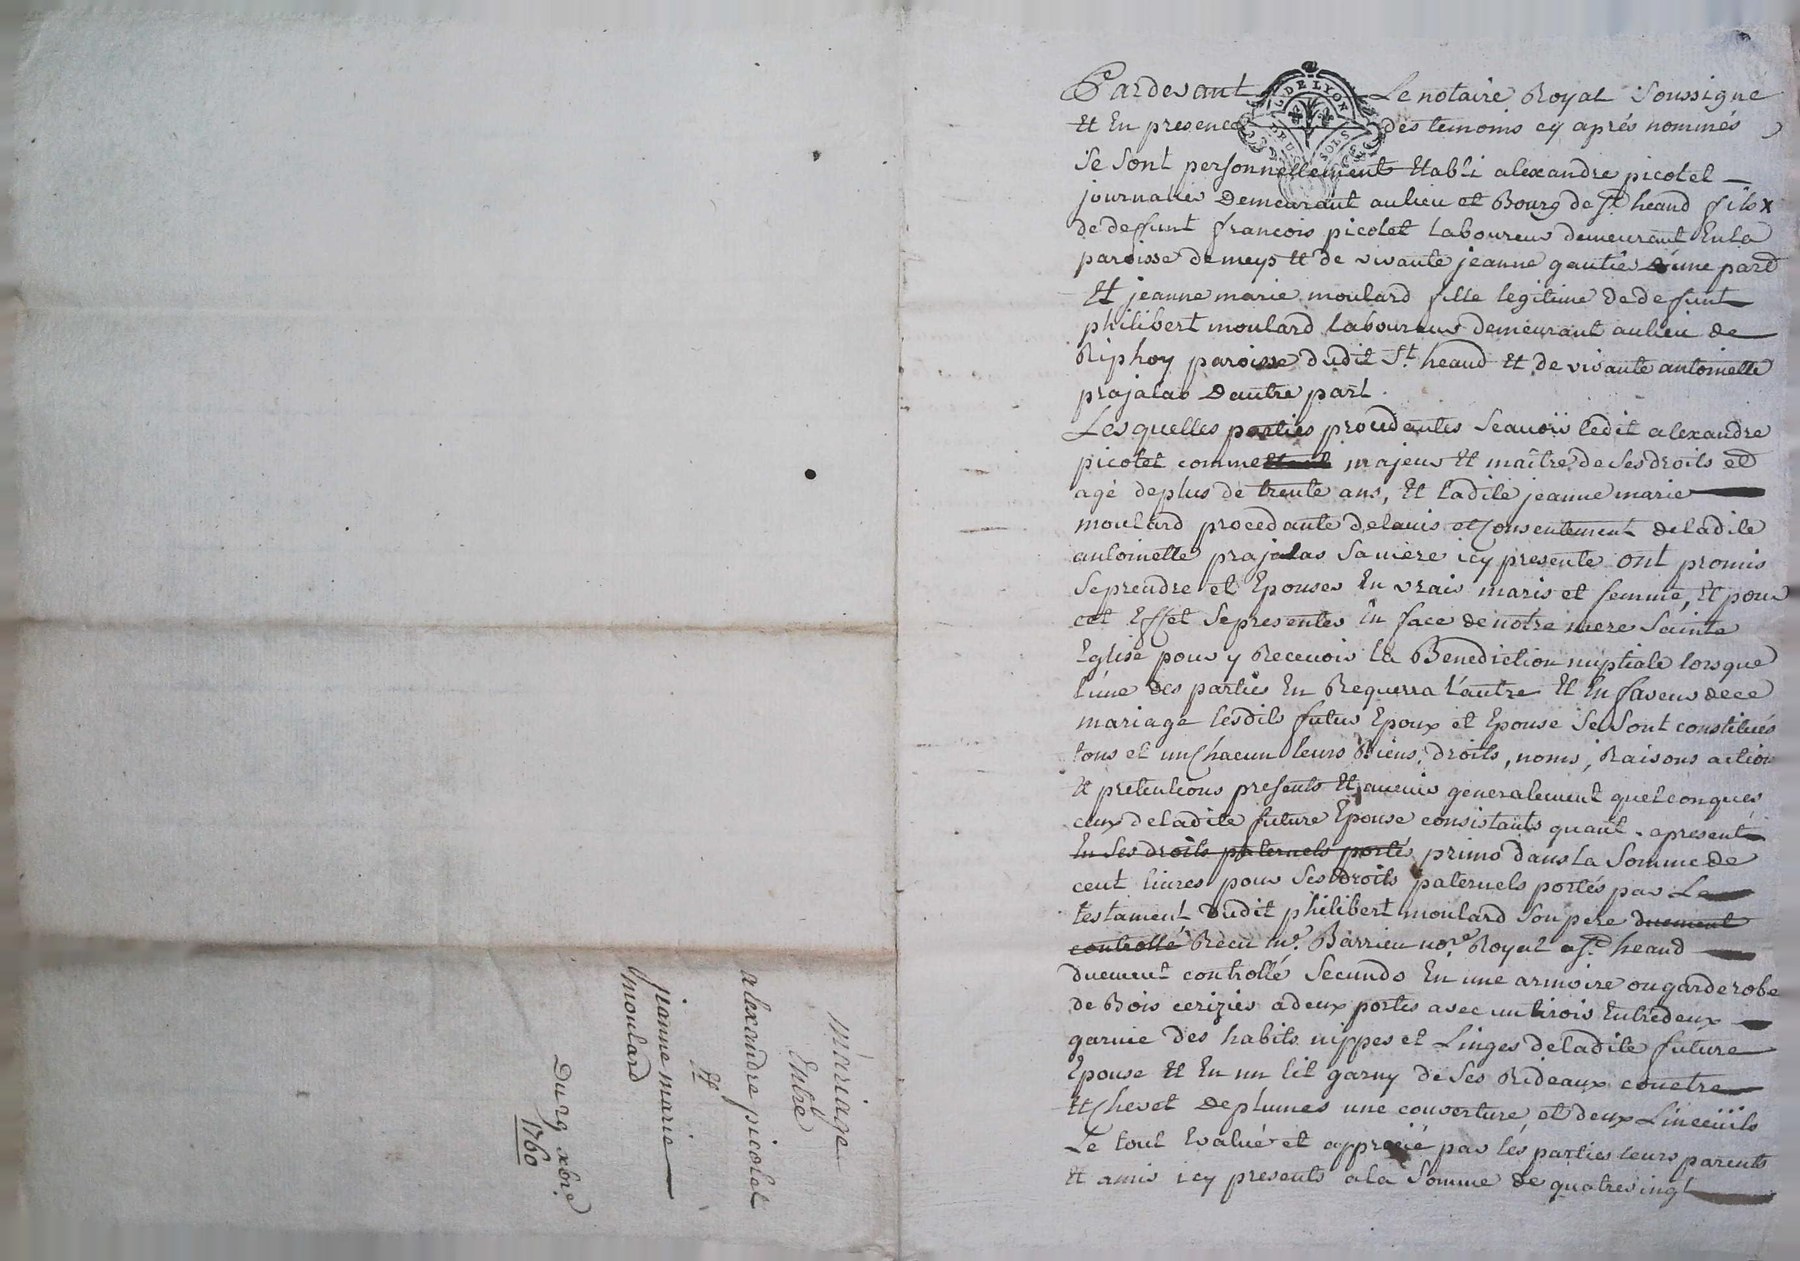 Mariage
Entre
alexandre picotet
Et
jeanne marie
moulard
Du 29 xbre
1760
G. DE LYON
DEUX SOLS
Pardevant Le notaire Royal Soussigné
Et En presence des temoins cy aprés nommés
Se Sont personnellement Etabli alexandre picotet
journalier Demeurant au lieu et Bourg de St. heand fils x
de deffunt francois picotet laboureur demeurant En la
paroisse de meys Et de vivante jeanne gautier d'une part
Et jeanne marie moulard fille legitime de defunt
philibert moulard laboureur demeurant au lieu de
Riphoy paroisse dudit St. heand Et de vivante antoinette
prajalas D'autre part.
Lesquelles parties procedantes Scavoir ledit alexandre
picotet comme majeur Et maître de Ses droits et
agé de plus de trente ans, Et ladite jeanne marie
moulard procedante de lavis et Consentement de ladite
antoinette prajalas Sa mere icy presente ont promis
Se prendre et Epouser En vrais maris et femme, Et pour
cet Effet Se presenter En face de notre mere Sainte
Eglise pour y Recevoir la Benediction nuptiale lorsque
l'une des parties En Requerra l'autre Et En faveur de ce
mariage lesdits futur Epoux et Epouse Se Sont constitués
tous et un Chacun leurs Biens, droits, noms, Raisons action
Et pretentions presents Et avenir generalement quelconques
ceux de ladite future Epouse consistants quant apresent
En Ses droits paternels portés primo dans la Somme de
cent livres pour Ses droits paternels portés par Le
testament Dudit philibert moulard Son pere duement
controllé Recu me. Barrieu nore Royal a St. heand
duement controllé Secundo En une armoire ou garderobe
de Bois cerizier a deux portes avec un tiroir Entredeux
garnie des habits nippes et Linges de ladite future
Epouse Et En un lit garny de Ses Rideaux couetre
Et Chevet de plumes une couverture et deux Linceuils
Le tout Evalué et apprecié par les parties leurs parents
Et amis icy presents a la Somme de quatrevingt